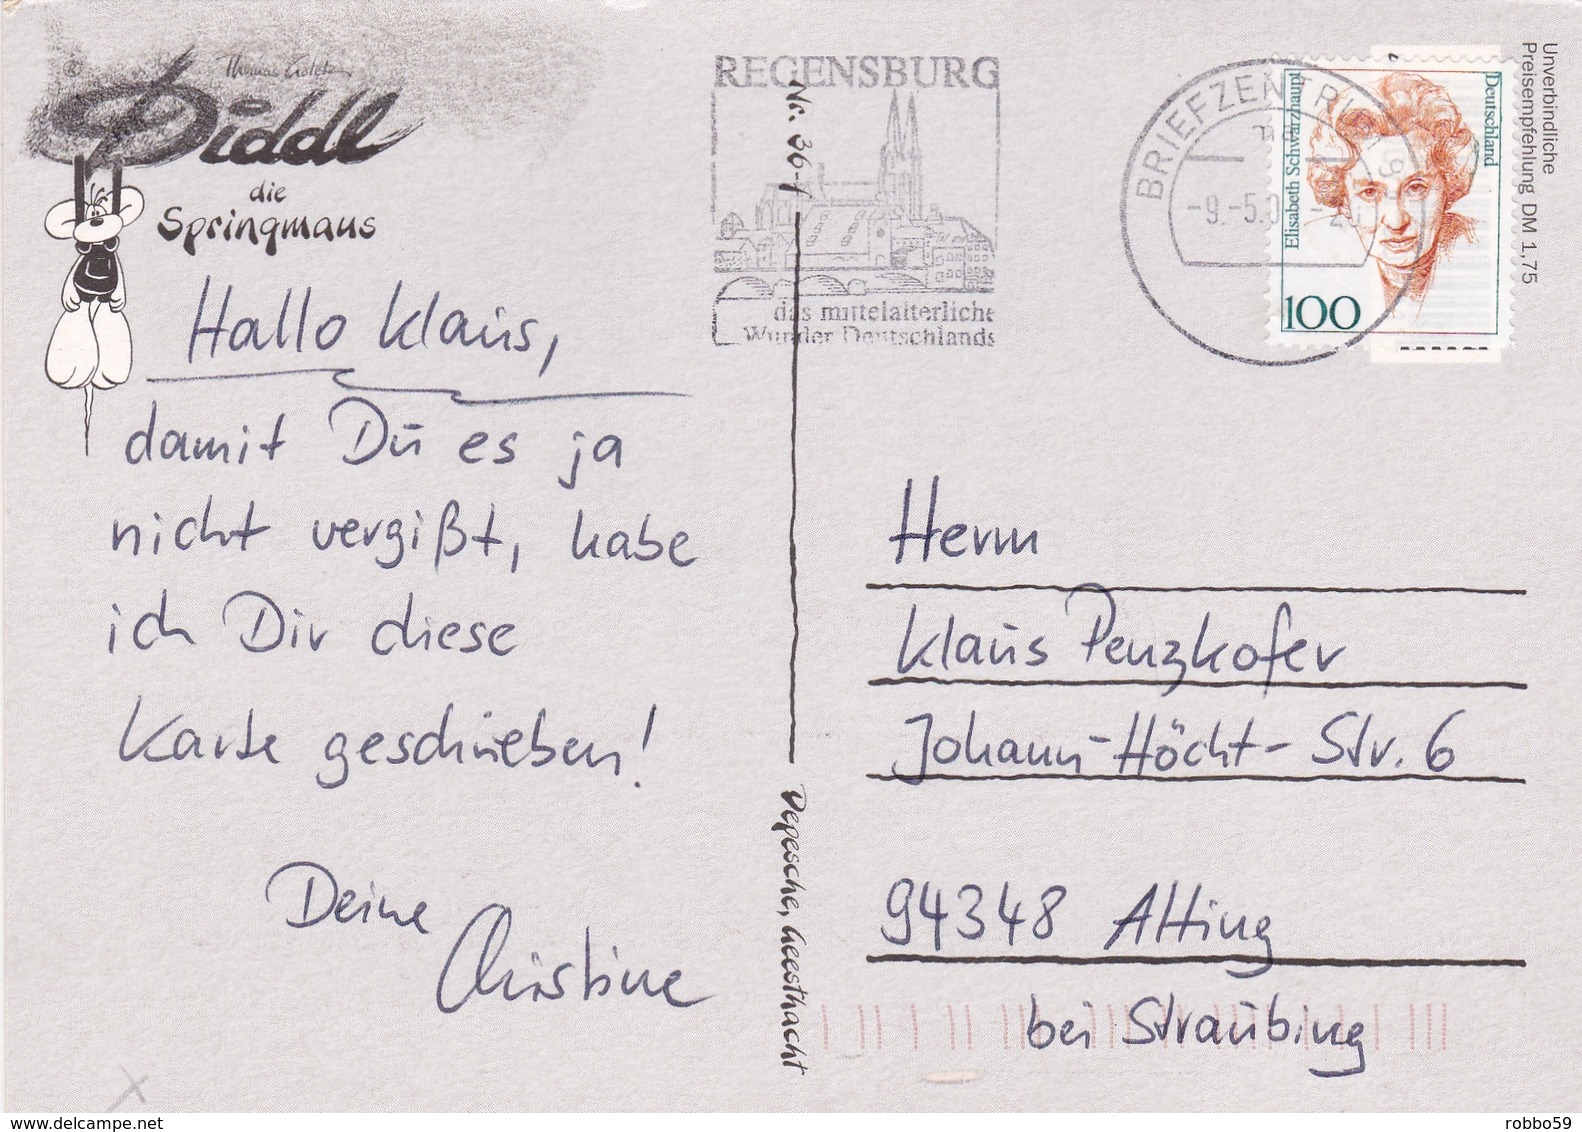 Thomas Goletz
Diddl
die
Springmaus
Hallo Klaus,
damit Du es ja
nicht vergißt, habe
ich Dir diese
Karte geschrieben!
Deine
Christine
REGENSBURG
das mittelalterliche
Wunder Deutschlands
Nr. 36-1
Depesche, Geesthacht
BRIEFZENTRUM 93
-9.-5.0
Deutschland
Elisabeth Schwarzhaupt
100
Unverbindliche
Preisempfehlung DM 1,75
Herrn
Klaus Penzkofer
Johann-Höcht-Str. 6
94348 Atting
bei Straubing
delcampe.net
robbo59